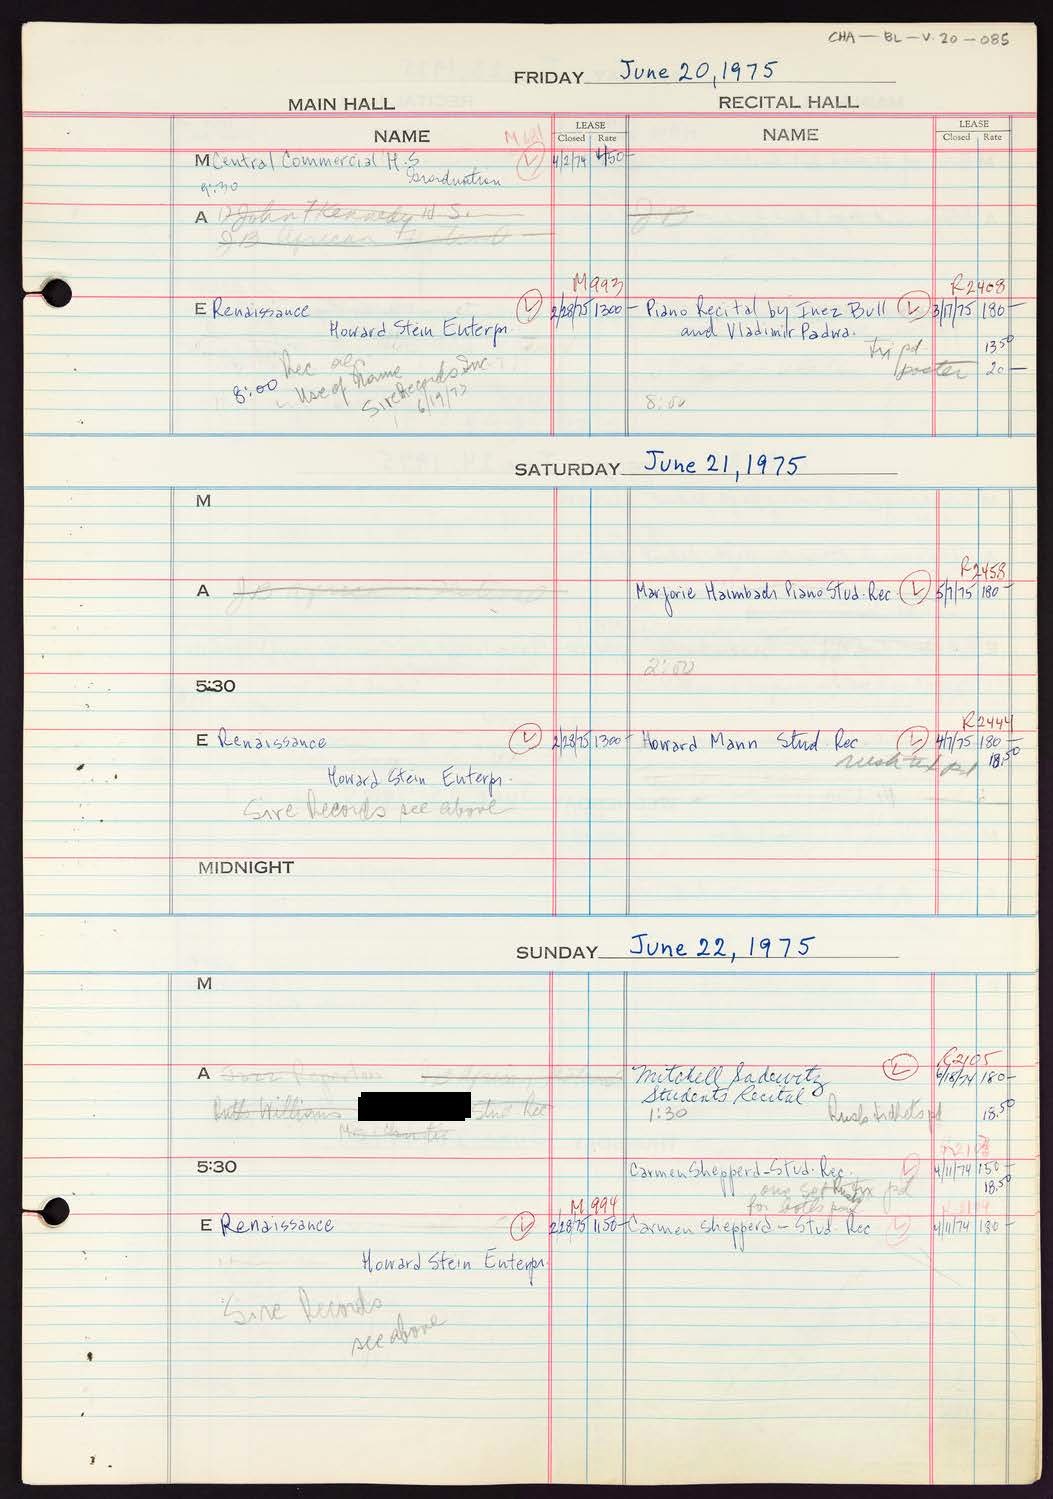 CHA - BL - V. 20 - 085
FRIDAY June 20, 1975
MAIN HALL RECITAL HALL
NAME LEASE Closed Rate NAME LEASE Closed Rate
M Central Commercial H.S. 4/2/74 450-
Graduation
9:30
A John F Kennedy H.S. JB
JB African
M993 R2408
E Renaissance 2/28/75 1300- Piano Recital by Inez Bull 3/17/75 180-
Howard Stein Enterpr. and Vladimir Padwa.
pd 13.50
poster 20-
8:00 Use of Name
Sire Records Inc
8:00
SATURDAY June 21, 1975
M
R2458
A JB Marjorie Haimbach Piano Stud. Rec. 5/7/75 180-
2:00
5:30
R2444
E Renaissance 2/28/75 1300- Howard Mann Stud Rec 4/7/75 180-
rush pd 18.50
Howard Stein Enterpr.
Sire Records see above
MIDNIGHT
SUNDAY June 22, 1975
M
R2105
A Mitchell Sadewitz 6/18/74 180-
Students Recital
Ruth Williams Stud Rec 1:30 Rush tickets pd 18.50
5:30 Carmen Shepperd-Stud. Rec. 4/11/74 150-
one set pd 18.50
for both
M994
E Renaissance 2/28/75 1150- Carmen Shepperd - Stud. Rec 4/11/74 180-
Howard Stein Enterpr.
Sire Records
see above